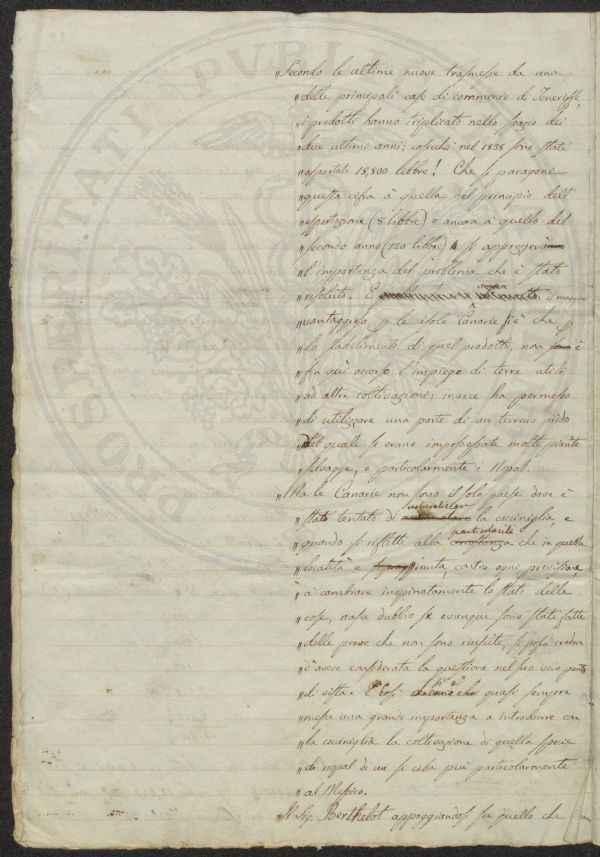 "Secondo le ultime nuove trasmesse da una
"delle principali case di commercio di Teneriffe,
"i prodotti hanno triplicato nello spazio dei
"due ultimi anni; cosicchè nel 1838 sono stati
"esportate 18,800 libbre! Che si paragoni
"questa cifra à quella del principio dell'
"esportazione (8 libbre) e ancora à quello del
"secondo anno (120 libbre) si apprezzerà
"l'importanza del problema che è stato
"risoluto. E ancora il maggior
"vantaggioso p le isole Canarie si è che
"lo stabilimento di quel prodotto, non si è
"fin quì accorso l'impiego di terre utili
"ad altre coltivazioni; invece ha permesso
"di utilizzare una parte di un terreno arido
"del quale si erano impossessate molte piante
"selvagge, e particolarmente i Nopal.
"Ma le Canarie non sono il solo paese dove è
"stato tentato di naturalizzar la cocciniglia, e
"quando si riflette alla particolarità che in quella
"località è giunta, contro ogni previsione,
"à cambiare inopinatamente lo stato delle
"cose, nasce dubbio se ovunque sono state fatte
"delle prove che non sono riuscite, si possa credere
"d'avere considerata la questione nel suo vero punto
"di vista. Così si è quasi sempre
"messa una grande importanza a introdurre con
"la cocciniglia la coltivazione di quella specie
"di nopal di cui si ciba più particolarmente
"al Messico.
"Il Sig. Berthelot appoggiandosi su quello che